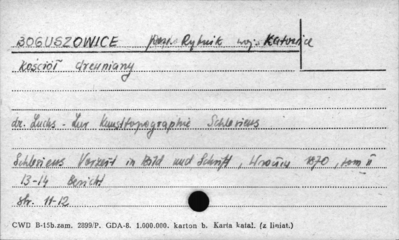 BOGUSZOWICE pow. Rybnik woj. Katowice
Kościół drewniany
dr. Luchs - Zur Kunsttopographie Schlesiens
Schlesiens Vorzeit in Bild und Schrift, Wrocław 1870, tom II
13-14 Bericht
str. 11-12
CWD B-15b.zam. 2899/P. GDA-8. 1.000.000. karton b. Karta katal. (z liniat.)